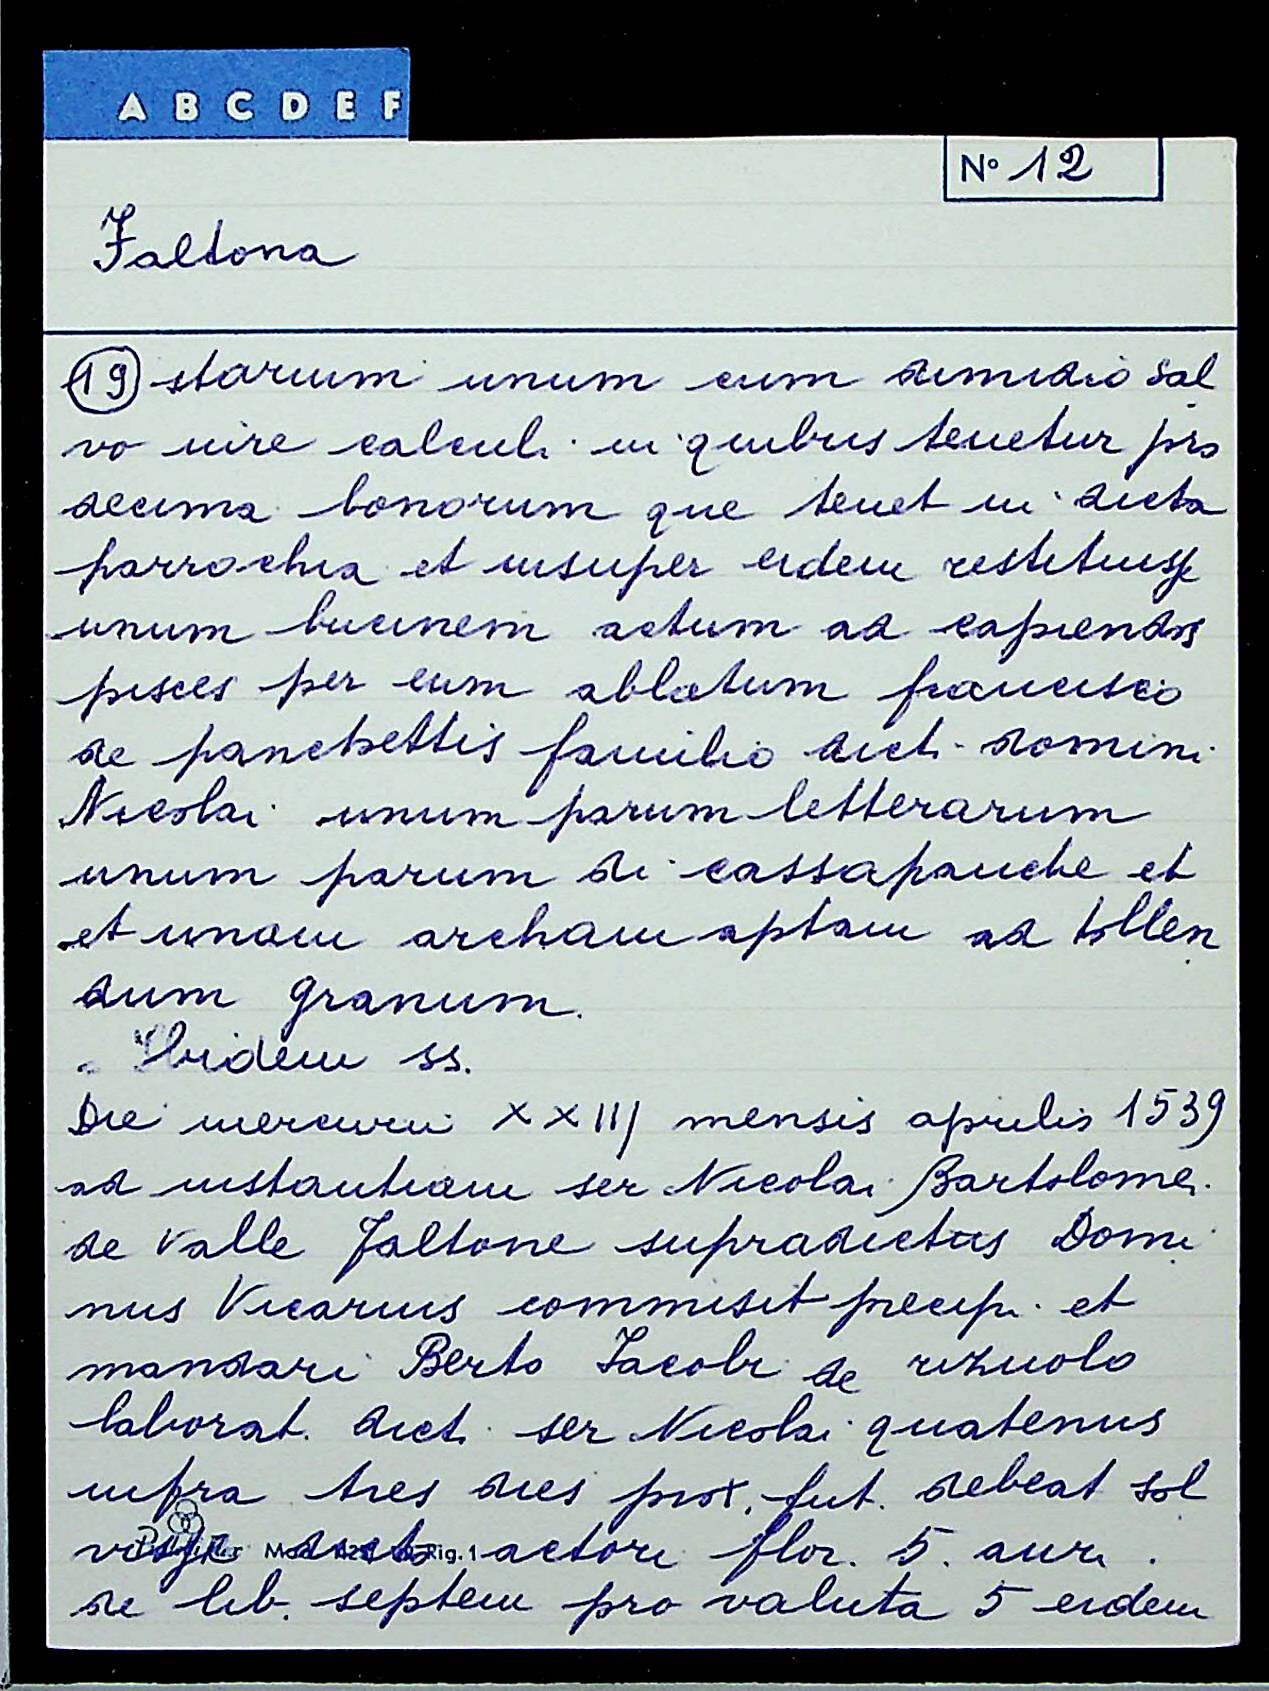 A B C D E F
N° 12
Faltona
19 starium unum cum dimidio sal
vo iure calculi in quibus tenetur pro
decima bonorum que tenet in dicta
parrochia et insuper eidem restituisse
unum bucinem actum ad capiendos
pisces per eum ablatum francisco
de panchettis familio dicti domini
Nicolai unum parum letterarum
unum parum di cassapanche et
et unam archam aptam ad tollen
dum granum.
Ibidem ss.
Die mercurii XXIII mensis aprilis 1539
ad instantiam ser Nicolai Bartolomei
de Valle Faltone supradictus Domi
nus Vicarius commisit precipi et
mandari Berto Iacobi de rizuolo
laborat. dict. ser Nicolai quatenus
infra tres dies prox. fut. debeat sol
actori flor. 5. auri.
de lib. septem pro valuta 5 eidem